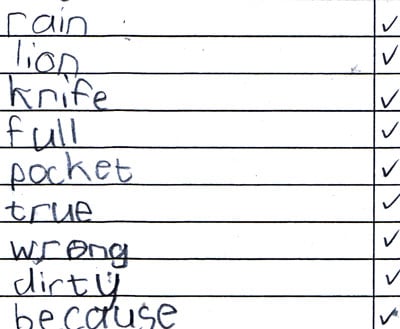 rain ✓
lion ✓
knife ✓
full ✓
pocket ✓
true ✓
wrong ✓
dirty ✓
because ✓